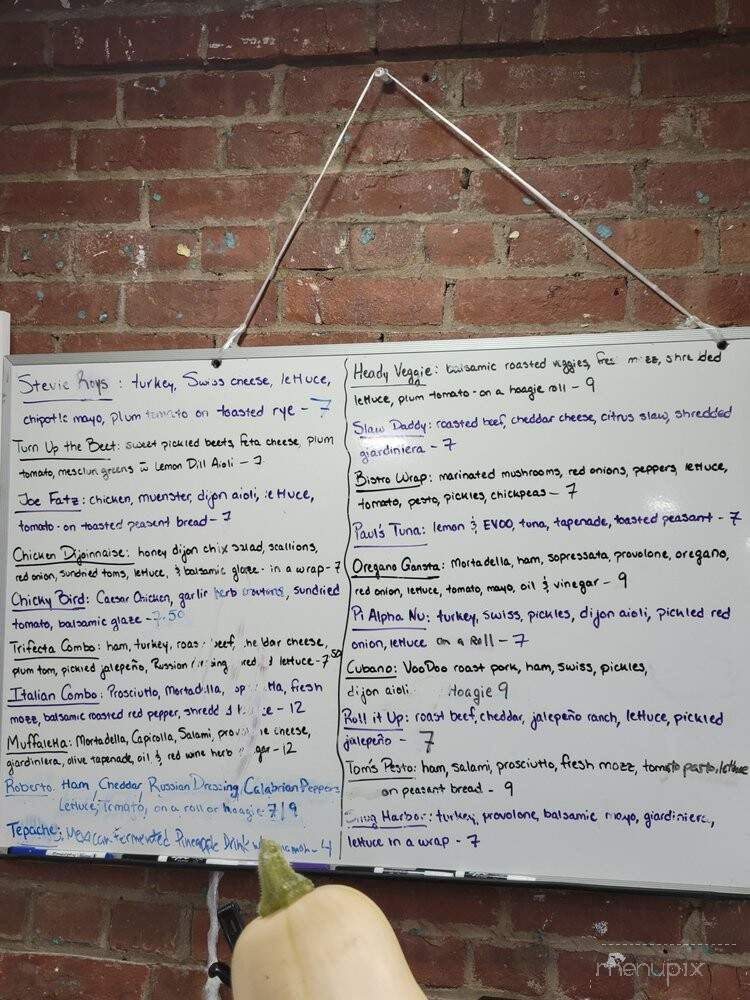 Stevie Rays : turkey, Swiss cheese, lettuce,
chipotle mayo, plum tomato on toasted rye - 7
Turn Up the Beet: sweet pickled beets, feta cheese, plum
tomato, mesclun greens w Lemon Dill Aioli - 7
Joe Fatz: chicken, muenster, dijon aioli, lettuce,
tomato - on toasted peasent bread - 7
Chicken Dijonnaise: honey dijon chix salad, scallions,
red onion, sundried toms, lettuce, & balsamic glaze - in a wrap - 7
Chicky Bird: Caesar Chicken, garlic herb croutons, sundried
tomato, balsamic glaze - 7.50
Trifecta Combo: ham, turkey, roast beef, cheddar cheese,
plum tom, pickled jalepeño, Russian lettuce - 7.50
Italian Combo: Prosciutto, Mortadella, fresh
mozz, balsamic roasted red pepper, - 12
Muffaletta: Mortadella, Capicolla, Salami, provolone cheese,
giardiniera, olive tapenade, oil & red wine herb - 12
Roberto. Ham, Cheddar Russian Dressing, Calabrian Peppers
Lettuce, Tomato, on a roll or hoagie. 7/9
Tepache: Mexican Fermented Pineapple Drink - 4
Heady Veggie: balsamic roasted veggies, mozz, shredded
lettuce, plum tomato - on a hoagie roll - 9
Slaw Daddy: roasted beef, cheddar cheese, citrus slaw, shredded
giardiniera - 7
Bistro Wrap: marinated mushrooms, red onions, peppers, lettuce,
tomato, pesto, pickles, chickpeas - 7
Paul's Tuna: lemon & EVOO, tuna, tapenade, toasted peasant - 7
Oregano Gansta: Mortadella, ham, sopressata, provolone, oregano,
red onion, lettuce, tomato, mayo, oil & vinegar - 9
Pi Alpha Nu: turkey, swiss, pickles, dijon aioli, pickled red
onion, lettuce on a Roll - 7
Cubano: VooDoo roast pork, ham, swiss, pickles,
dijon aioli Hoagie 9
Roll it Up: roast beef, cheddar, jalepeño ranch, lettuce, pickled
jalepeño - 7
Tom's Pesto: ham, salami, prosciutto, fresh mozz, tomato pesto, lettuce
on peasant bread - 9
Snug Harbor: turkey, provolone, balsamic mayo, giardiniera,
lettuce in a wrap - 7
menupix